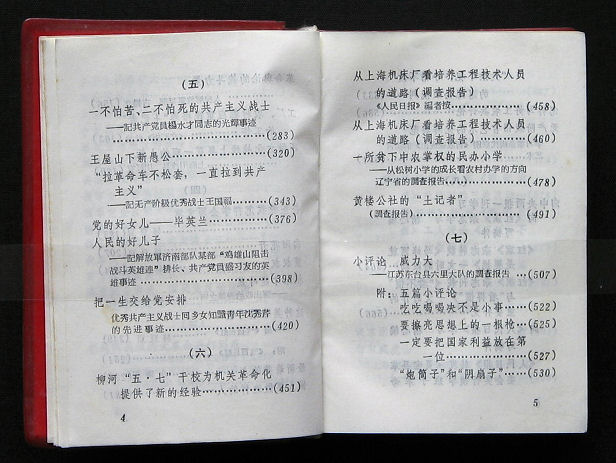 （五）
一不怕苦、二不怕死的共产主义战士
——記共产党員楊水才同志的光輝事迹
………………………………(283)
王屋山下新愚公……………(320)
“拉革命车不松套，一直拉到共产
主义”
——记无产阶级优秀战士王国福……(343)
党的好女儿——毕英兰……(376)
人民的好儿子
——記解放軍济南部队某部“鸡雄山阻击
战斗英雄連”排长、共产党員盛习友的英
雄事迹………………………(398)
把一生交给党安排
优秀共产主义战士回乡女知識青年沈秀芹
的先进事迹…………………(420)
（六）
柳河“五·七”干校为机关革命化
提供了新的经验…………(451)
4
从上海机床厂看培养工程技术人员
的道路（调查报告）
《人民日报》編者按……………(458)
从上海机床厂看培养工程技术人员
的道路（调查报告）…………(460)
一所贫下中农掌权的民办小学
——从松树小学的成长看农村办学的方向
辽宁省的調查报告………………(478)
黄楼公社的“土记者”
(調查报告)……………………(491)
（七）
小评论 威力大
——江苏东台县六里大队的調查报告…(507)
附：五篇小评论
吃吃喝喝决不是小事……(522)
要擦亮思想上的一根枪……(525)
一定要把国家利益放在第
一位………………………(527)
“炮筒子”和“阴扇子”……(530)
5